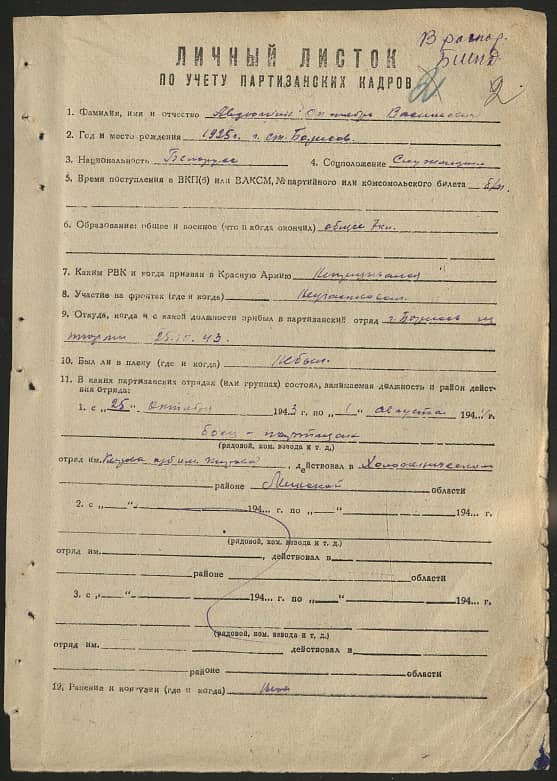 В распор.
ЛИЧНЫЙ ЛИСТОК
ПО УЧЕТУ ПАРТИЗАНСКИХ КАДРОВ
2
1. Фамилия, имя и отчество Васильевич
2. Год и место рождения 1925г. г. ст. Борисов.
3. Национальность Белорус 4. Соцположение Служащий
5. Время поступления в ВКП(б) или ВЛКСМ, № партийного или комсомольского билета б/п.
6. Образование: общее и военное (что и когда окончил) общее 7 кл.
7. Каким РВК и когда призван в Красную Армию Не призывался
8. Участие на фронтах (где и когда) Не участвовал.
9. Откуда, когда и с какой должности прибыл в партизанский отряд г. Борисов из
тюрьмы 25.10.43.
10. Был ли в плену (где и когда) Не был.
11. В каких партизанских отрядах (или группах) состоял, занимаемая должность и район действия отряда:
1. с „25" октября 1943 г. по „1" августа 1944 г.
Боец - партизан
(рядовой, ком. взвода и т. д.)
отряд им. , действовал в Холопеничском
районе Минской области
2. с „ " 194... г. по „ " 194... г.
(рядовой, ком. взвода и т. д.)
отряд им. , действовал в
районе области
3. с „ " 194... г. по „ " 194... г.
(рядовой, ком. взвода и т. д.)
отряд им. действовал в
районе области
12. Ранения и контузии (где и когда) нет